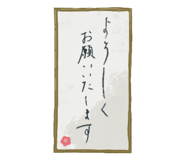 よろしく
お願いいたします